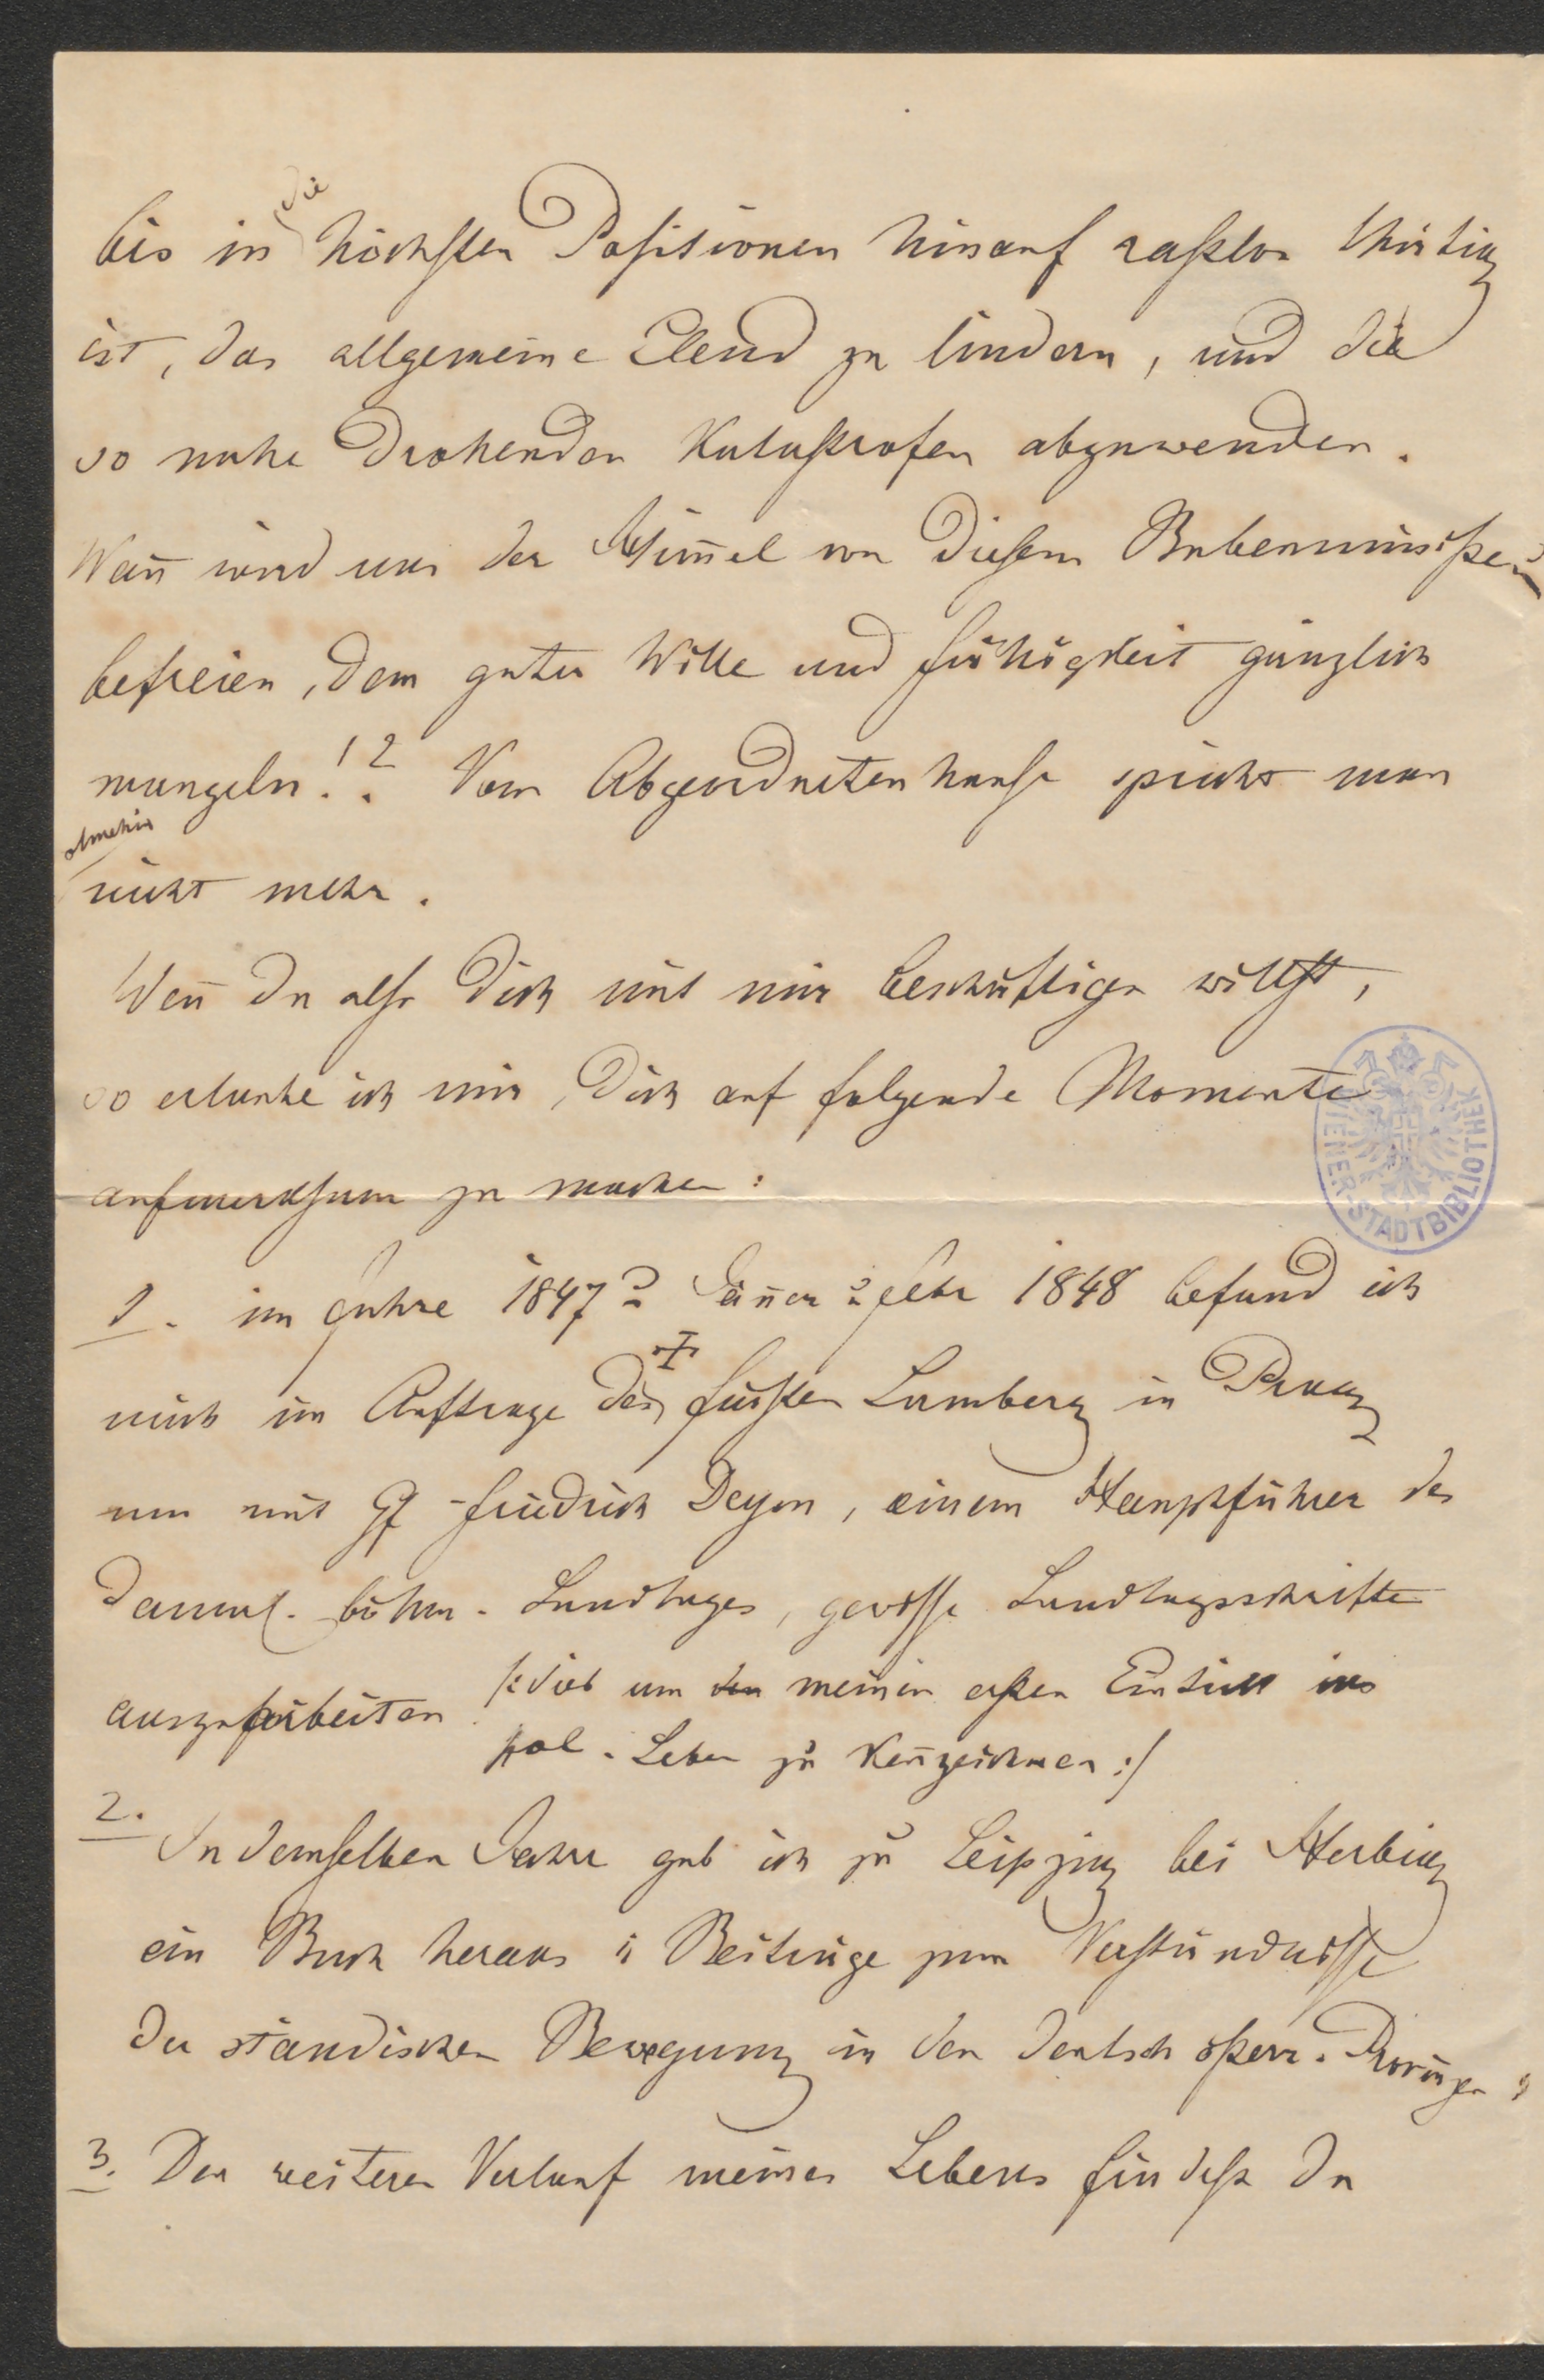 bis in die höchsten Positionen hinauf rastlos thätig
ist, das allgemeine Elend zu lindern, und die
so nahe drohenden Katastrofen abzuwenden.
Wan̄ wird uns der Him̄el von diesem Bubenministerium
befreien, dem guter Wille und Fähigkeit gänzlich
mangeln!? Vom Abgeordnetenhause spricht man
ohnehin
nicht mehr.
Wen̄ Du also Dich mit mir beschäftigen willst,
so erlaube ich mir, Dich auf folgende Momente
aufmerksam zu machen:
1. im Jahre 1847? Jän̄er ? Febr 1848 befand ich
mich im Auftrage des † Fürsten Lamberg in Prag
um mit Gf Friedrich Deym, einem Hauptführer des
damal. böhm. Landtages, gewisse Landtagsschriften
auszuarbeiten /: dies um meinen ersten Eintritt ins
pol. Leben zu ken̄zeichnen :/
2. In demselben Jahre gab ich zu Leipzig bei Herbig
ein Buch heraus „Beiträge zum Verständnisse
der ständischen Bewegung in den deutsch österr. Provinzen"
3. Den weiteren Verlauf meines Lebens findest Du
WIENER-STADTBIBLIOTHEK